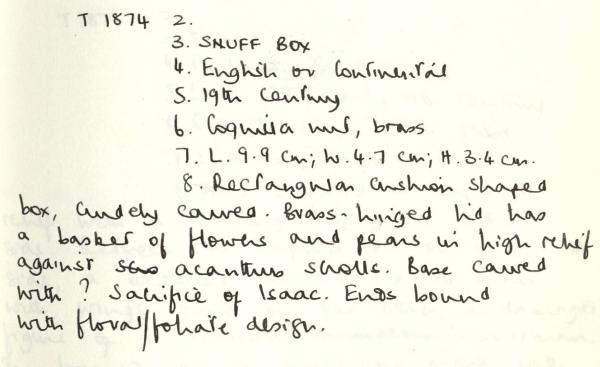 T 1874 2.
3. SNUFF BOX
4. English or Continental
5. 19th Century
6. Coquilla nut, brass
7. L. 9.9 cm; W. 4.7 cm; H. 3.4 cm.
8. Rectangular cushion shaped
box, crudely carved. Brass-hinged lid has
a basket of flowers and pears in high relief
against acanthus scrolls. Base carved
with ? Sacrifice of Isaac. Ends bound
with floral/foliate design.